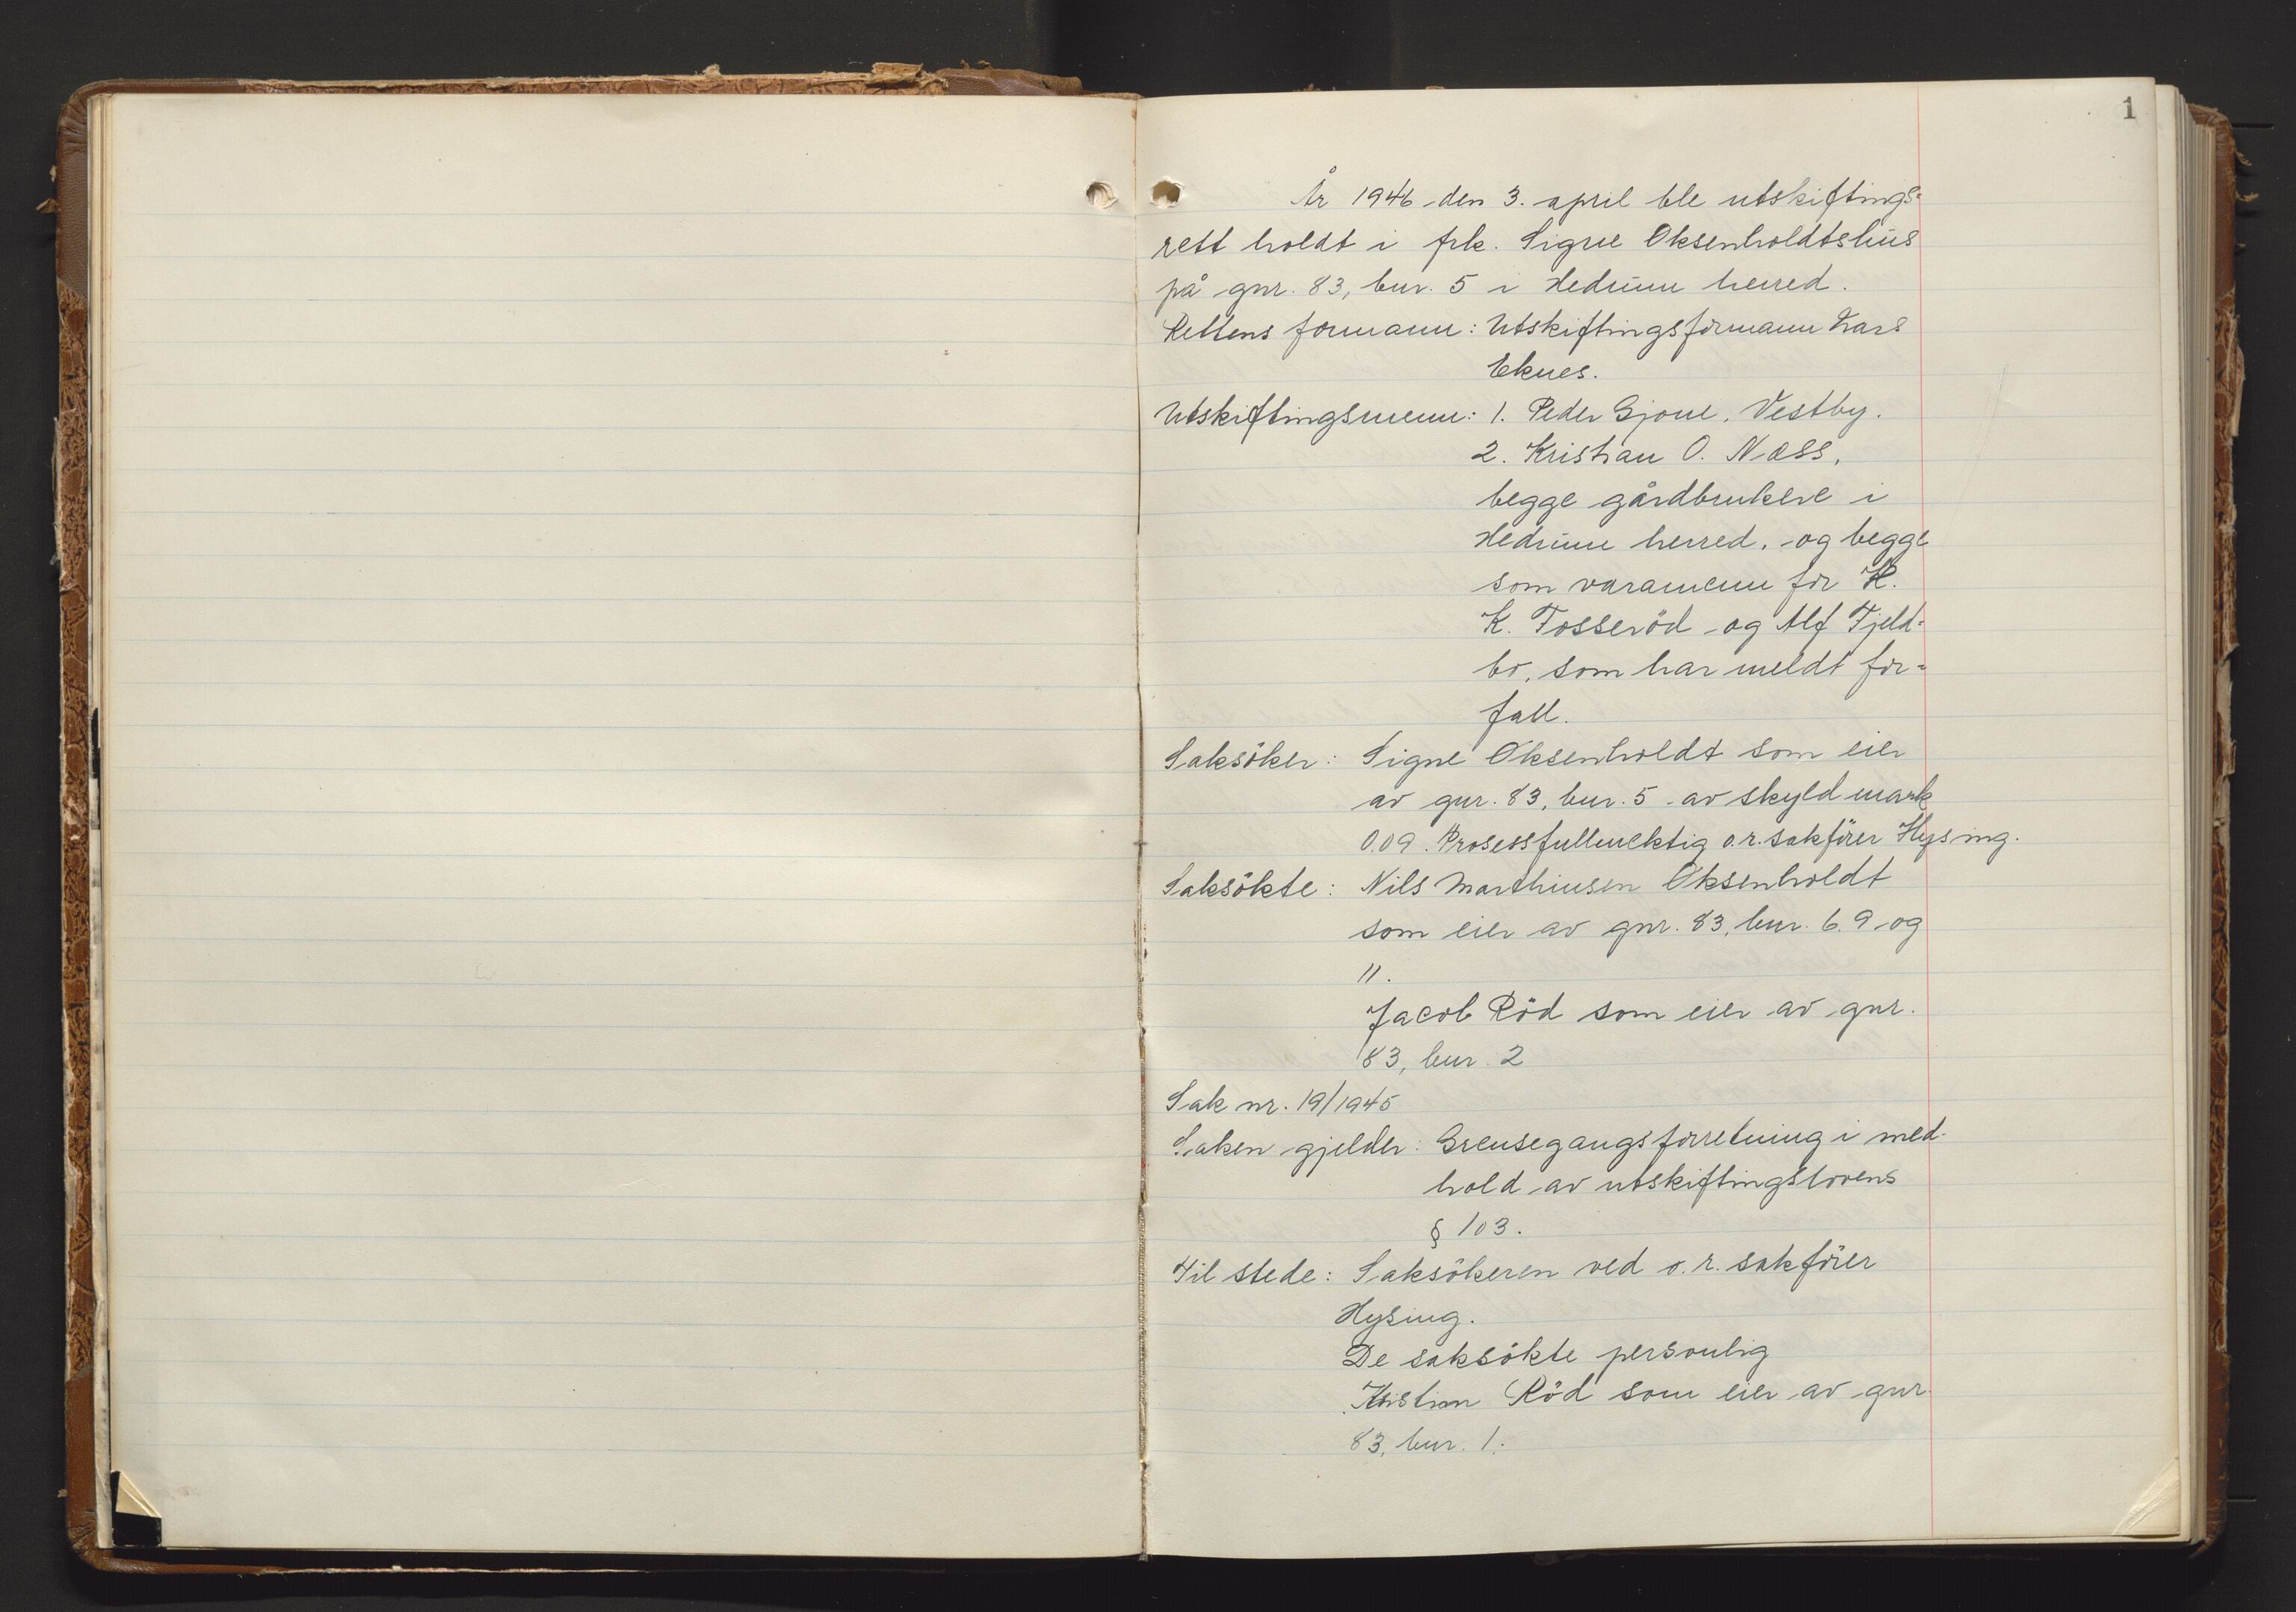 1
År 1946 den 3. april ble utskiftings-
rett holdt i frk. Signe Oksenholdtshus
på gnr. 83, bnr. 5 i Hedrum herred.
Rettens formann: Utskiftingsformann Lars
Eknes.
Utskiftingsmenn: 1. Peder Gjone, Vestby.
2. Kristian O. Næss,
begge gårdbrukere i
Hedrum herred, og begge
som varamenn for H.
K. Tosseröd og Alf Fjeld-
bo, som har meldt for-
fall.
Saksöker: Signe Oksenholdt som eier
av gnr. 83, bnr. 5 av skyld mark
0.09. Prosessfullmektig o.r.sakförer Hysing.
Saksökte: Nils Marthinsen Oksenholdt
som eier av gnr. 83, bnr. 6, 9 og
11.
Jacob Röd som eier av gnr.
83, bnr. 2
Sak nr. 19/1945
Saken gjelder: Grensegangsforretning i med-
hold av utskiftingslovens
§ 103.
Til stede: Saksökeren ved o.r. sakförer
Hysing.
De saksökte personlig
Kristian Röd som eier av gnr.
83, bnr. 1.